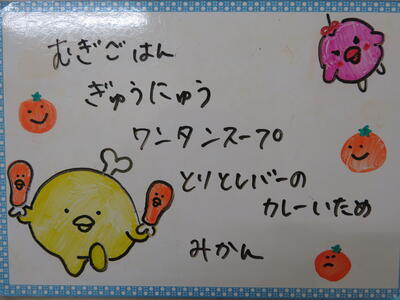 むぎごはん
ぎゅうにゅう
ワンタンスープ
とりとレバーの
カレーいため
みかん